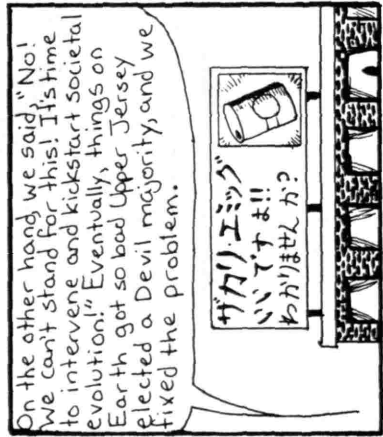 On the other hand, we said, "No!
We can't stand for this! It's time
to intervene and kickstart societal
evolution!" Eventually, things on
Earth got so bad Upper Jersey
elected a Devil majority, and we
fixed the problem.
ザカリ・エミッグ
いいですよ!!
わかりませんか?